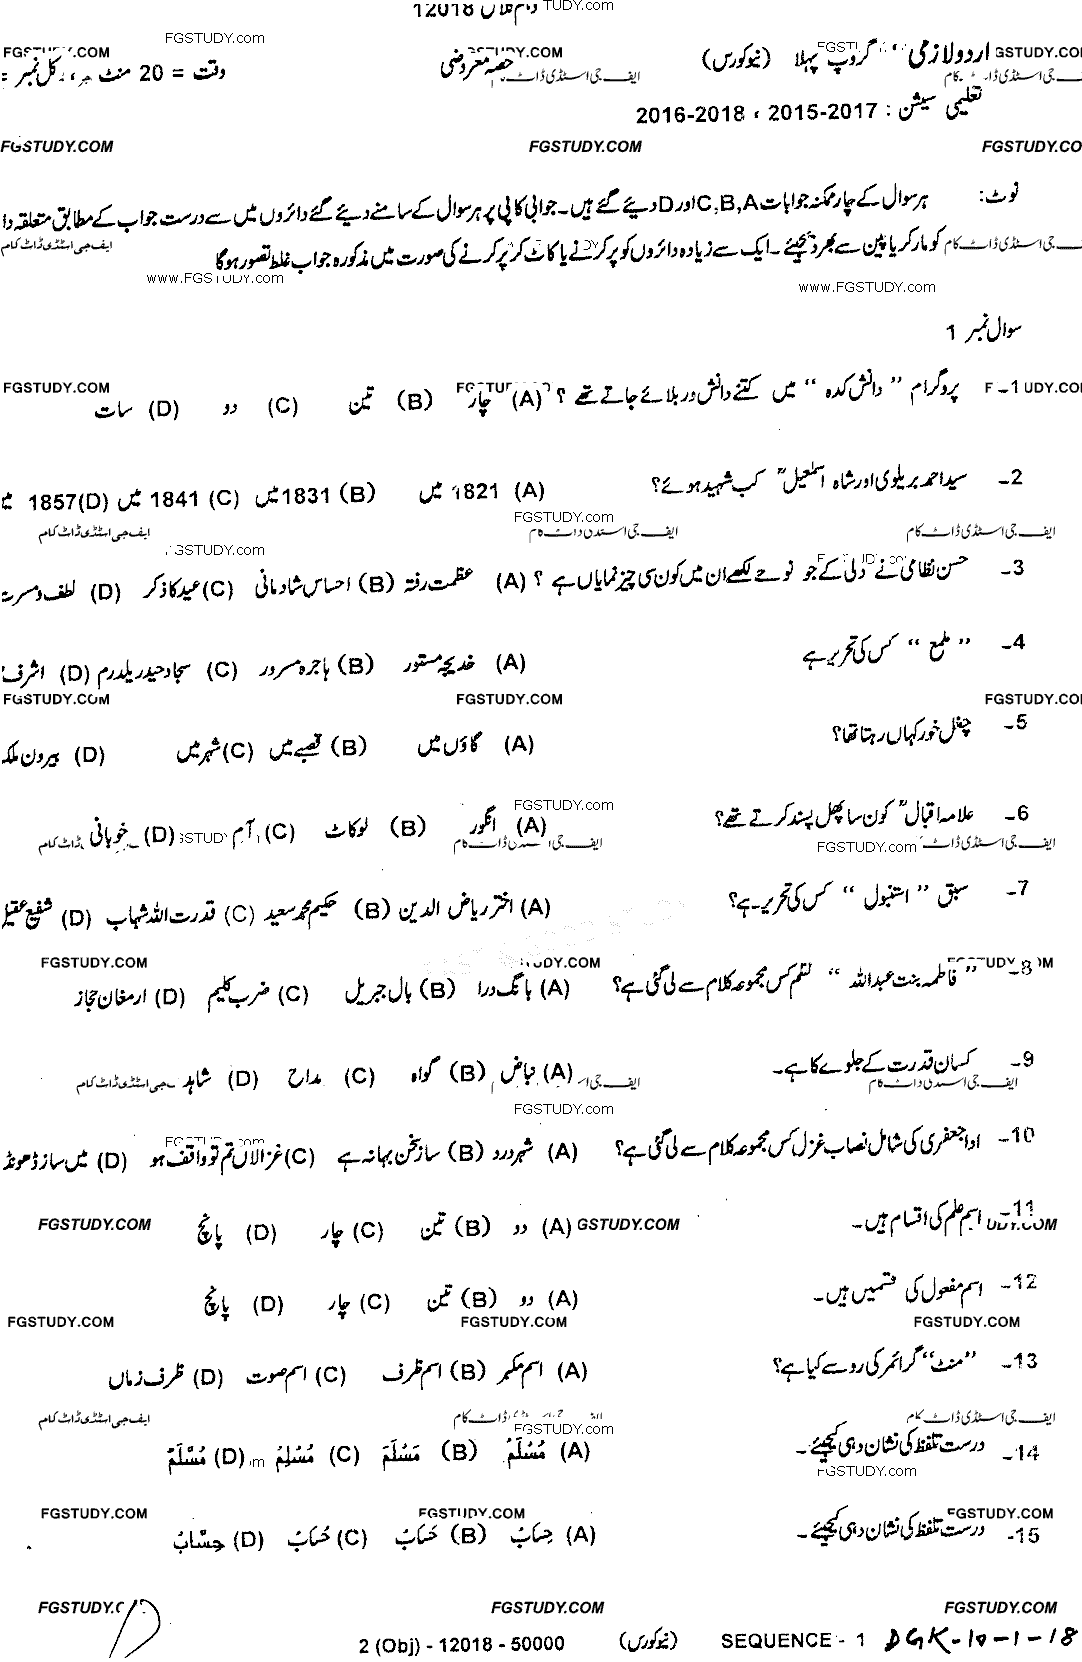 دہم کلاس 12018 TUDY.com
FGSTUDY.com
FGSTUDY.COM UDY.COM GSTUDY.CO
اردو لازمی گروپ پہلا (نیو کورس) حصہ معروضی وقت = 20 منٹ کل نمبر =
ایف جی اسٹڈی ڈاٹ کام جی اسٹڈی ڈاٹ کام
تعلیمی سیشن : 2017-2015 ، 2018-2016
FGSTUDY.COM FGSTUDY.COM FGSTUDY.CO
نوٹ: ہر سوال کے چار ممکنہ جوابات C,B,A اور D دیئے گئے ہیں۔ جوابی کاپی پر ہر سوال کے سامنے دیئے گئے دائروں میں سے درست جواب کے مطابق متعلقہ دا
کو مارکر یا پین سے بھر دیجئیے۔ ایک سے زیادہ دائروں کو پر کرنے یا کاٹ کر پر کرنے کی صورت میں مذکورہ جواب غلط تصور ہوگا
جی اسٹڈی ڈاٹ کام ایف جی اسٹڈی ڈاٹ کام
www.FGSTUDY.com www.FGSTUDY.com
سوال نمبر 1
FGSTUDY.COM UDY.CO
1۔ پروگرام "دانش کدہ" میں کتنے دانش ور بلائے جاتے تھے ؟ (A) چار (B) تین (C) دو (D) سات
2۔ سید احمد بریلوی اور شاہ اسمٰعیلؒ کب شہید ہوئے؟ (A) 1821 میں (B) 1831 میں (C) 1841 میں (D) 1857 میں
FGSTUDY.com
ایف جی اسٹڈی ڈاٹ کام ایف جی اسٹڈی ڈاٹ کام ایف جی اسٹڈی ڈاٹ کام
GSTUDY.com
3۔ حسن نظامی نے دلی کے جو نوحے لکھے ان میں کون سی چیز نمایاں ہے ؟ (A) عظمت رفتہ (B) احساس شادمانی (C) عید کا ذکر (D) لطف و مسرت
4۔ "ملمع" کس کی تحریر ہے (A) خدیجہ مستور (B) ہاجرہ مسرور (C) سجاد حیدر یلدرم (D) اشرف
FGSTUDY.COM FGSTUDY.COM FGSTUDY.CO
5۔ چغل خور کہاں رہتا تھا؟ (A) گاؤں میں (B) قصبے میں (C) شہر میں (D) بیرون ملک
FGSTUDY.com
6۔ علامہ اقبالؒ کون سا پھل پسند کرتے تھے؟ (A) انگور (B) لوکاٹ (C) آم (D) خوبانی
FGSTUDY.com
7۔ سبق "استنبول" کس کی تحریر ہے؟ (A) اختر ریاض الدین (B) حکیم محمد سعید (C) قدرت اللہ شہاب (D) شفیع عقیل
FGSTUDY.COM UDY.COM
8۔ "فاطمہ بنت عبداللہ" نظم کس مجموعہ کلام سے لی گئی ہے؟ (A) بانگ درا (B) بال جبریل (C) ضرب کلیم (D) ارمغان حجاز
9۔ کسان قدرت کے جلوے کا ہے۔ (A) نباض (B) گواہ (C) مداح (D) شاہد
FGSTUDY.com
10۔ ادا جعفری کی شامل نصاب غزل کس مجموعہ کلام سے لی گئی ہے؟ (A) شہر درد (B) ساز سخن بہانہ ہے (C) غزالاں تم تو واقف ہو (D) میں ساز ڈھونڈ
11۔ اسم علم کی اقسام ہیں۔ (A) دو (B) تین (C) چار (D) پانچ
FGSTUDY.COM GSTUDY.COM
12۔ اسم مفعول کی قسمیں ہیں۔ (A) دو (B) تین (C) چار (D) پانچ
FGSTUDY.COM FGSTUDY.COM FGSTUDY.COM
13۔ "منٹ" گرائمر کی رو سے کیا ہے؟ (A) اسم مکبر (B) اسم ظرف (C) اسم صوت (D) ظرف زماں
ایف جی اسٹڈی ڈاٹ کام ایف جی اسٹڈی ڈاٹ کام
FGSTUDY.com
14۔ درست تلفظ کی نشان دہی کیجئیے۔ (A) مُسْلَمُ (B) مَسْلَمَ (C) مُسْلِمُ (D) مُسَّلَمْ
FGSTUDY.com
FGSTUDY.COM FGSTUDY.COM FGSTUDY.COM
15۔ درست تلفظ کی نشان دہی کیجئیے۔ (A) حِسَابُ (B) حَسَابُ (C) حُسَابُ (D) حِسَّابُ
FGSTUDY.COM FGSTUDY.COM
2 (Obj) - 12018 - 50000 (نیو کورس) SEQUENCE - 1 DGK-10-1-18